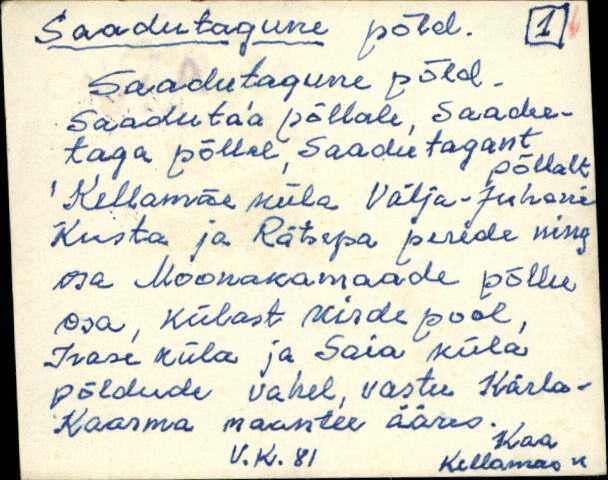 Saadutagune põld. 1
Saadutagune põld.
Saadutaa põllale, Saadu-
taga põllal, Saadutagant
põllalt
Kellamäe küla Välja-Juhani
Kusta ja Rätsepa perede ning
osa Moonakamaade põllu
osa, külast kirde pool,
Irase küla ja Saia küla
põldude vahel, vastu Kärla-
Kaarma maantee ääres.
V.K. 81
Kaa
Kellamäe k